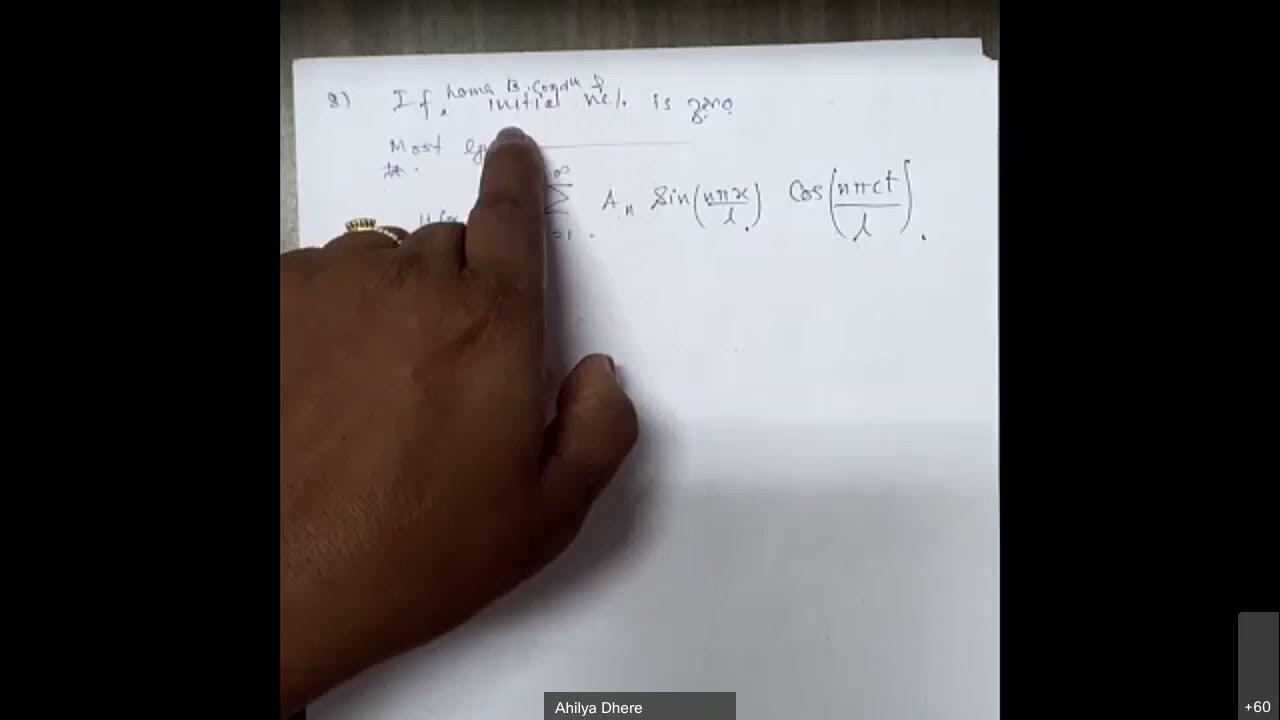 8) If, homo B. Condn & initial vel. is zero
Most
∞
Σ An Sin(nπx/l) Cos(nπct/l).
=1
Ahilya Dhere
+60